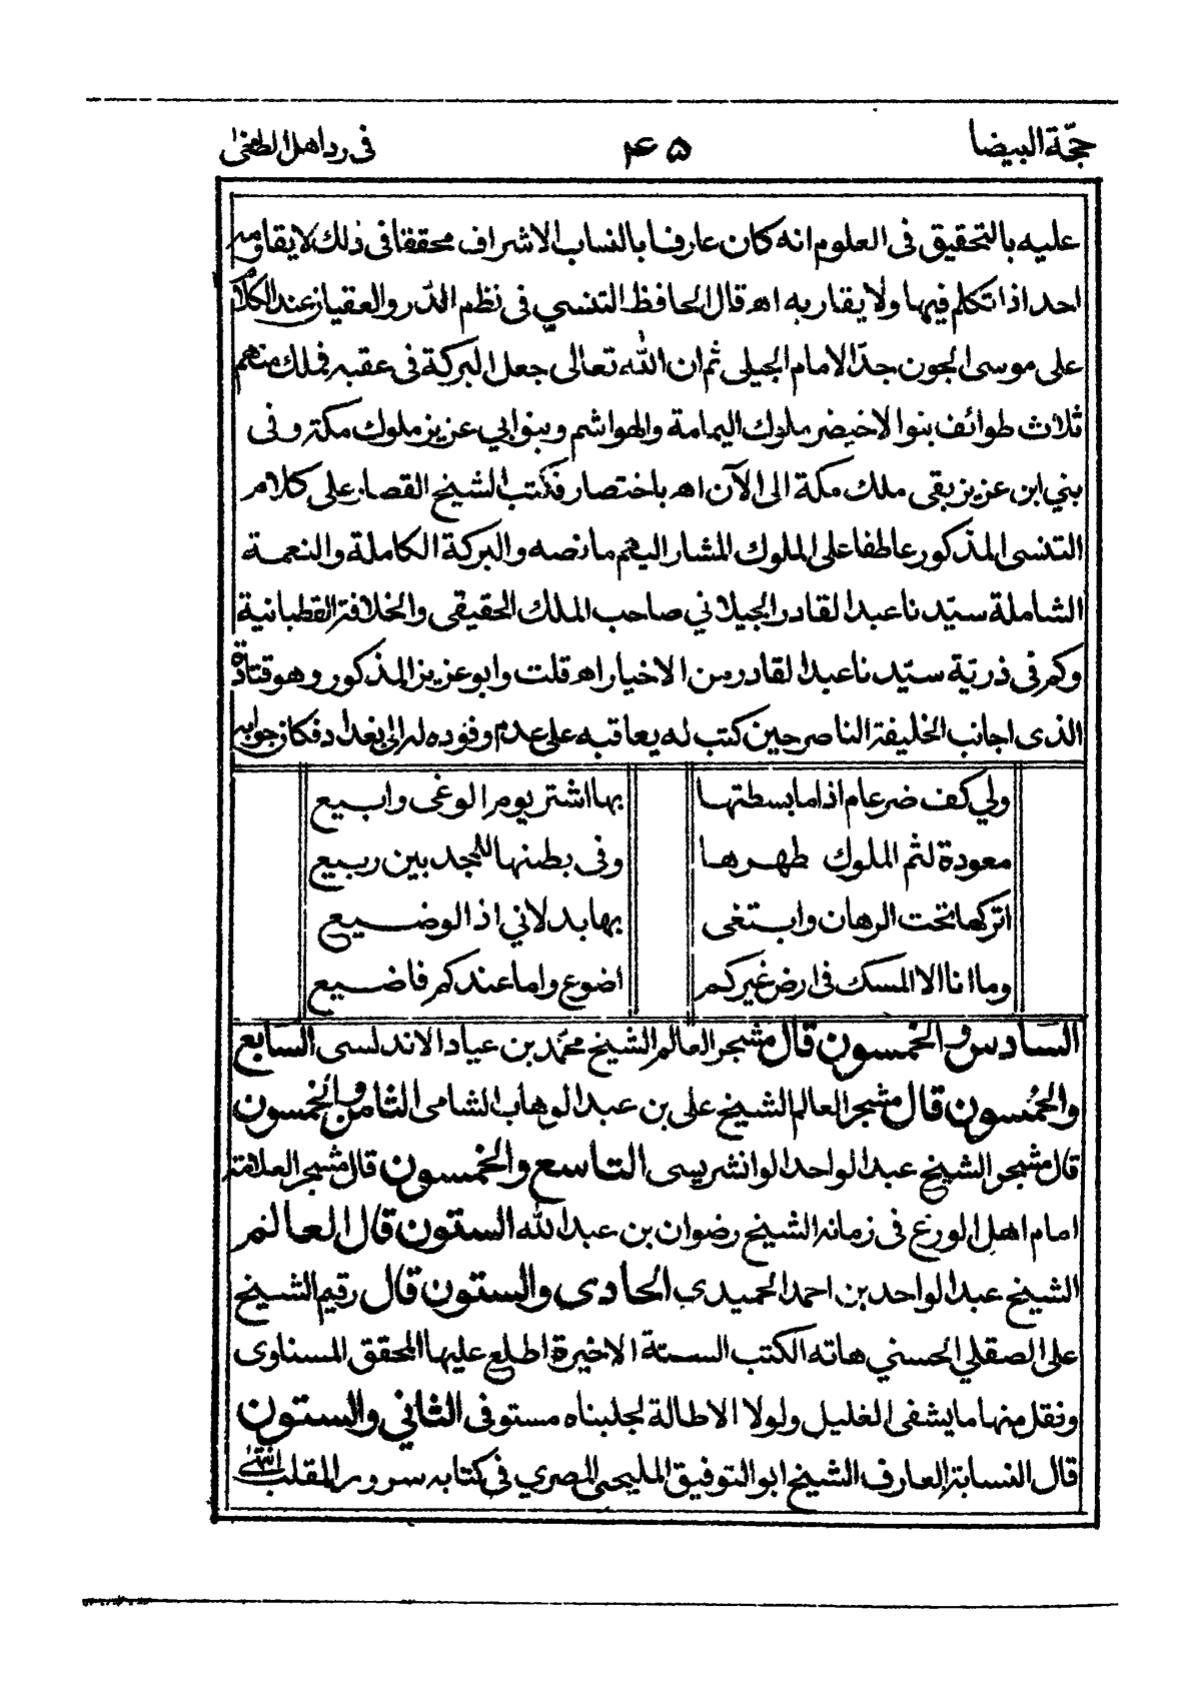 حجّة البيضا ۴۵ فى رد اهل الطغى
عليه بالتحقيق فى العلوم انه كان عارفا بالنساب الاشراف محققا فى ذلك لا يقاومه
احد اذا تكلم فيها ولا يقاربه اه قال الحافظ التنسي فى نظم الدّر والعقيان عند الكلام
على موسى الجون جدّ الامام الجيلى ثم ان الله تعالى جعل البركة فى عقبه فملك منهم
ثلاث طوائف بنوا الاخيضر ملوك اليمامة والهواشم وبنوابي عزيز ملوك مكة وفى
بني ابن عزيز بقى ملك مكة الى الآن اه باختصار فكتب الشيخ القصار على كلام
التنسى المذكور عاطفا على الملوك المشار اليهم ما نصه والبركة الكاملة والنعمة
الشاملة سيّدنا عبد القادر الجيلاني صاحب الملك الحقيقى والخلافة القطبانية
وكم فى ذريّة سيّدنا عبد القادر من الاخيار اه قلت وابو عزيز المذكور وهو قتادة
الذى اجانب الخليفة الناصر حين كتب له يعاقبه على عدم وفوده له الى بغداد فكان جوابه
ولي كف ضرعام اذا ما بسطتها بها اشتر يوم الوغى وابيع
معودة لثم الملوك طهرها وفى بطنها للمجد بين ربيع
اتركها تحت الرهان وابتغى بها بدلا اني اذا الوضيع
وما انا الا المسك فى ارض غيركم اضوع واما عندكم فاضيع
السادس والخمسون قال مشجر العالم الشيخ محمّد بن عياد الاندلسى السابع
والخمسون قال مشجر العالم الشيخ على بن عبد الوهاب الشامى الثامن والخمسون
قال مشجر الشيخ عبد الواحد الوانشريسى التاسع والخمسون قال مشجر العلامة
امام اهل الورع فى زمانه الشيخ رضوان بن عبد الله الستون قال العالم
الشيخ عبد الواحد بن احمد الحميدي الحادى والستون قال رقيم الشيخ
على الصقلي الحسني هاته الكتب الستة الاخيرة اطلع عليها المحقق المسناوى
ونقل منها ما يشفى الغليل ولولا الاطالة لجلبناه مستوفى الثاني والستون
قال النسابة العارف الشيخ ابو التوفيق المليجى المصري فى كتابه سرور القلب انتهى